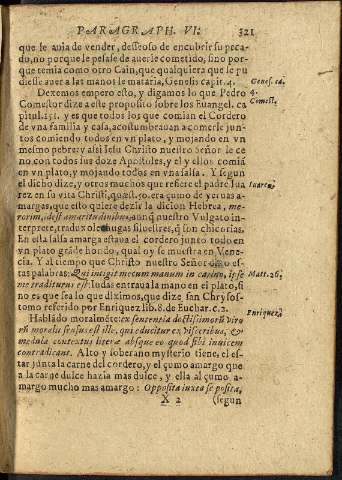 PARAGRAPH. VI. 321
que se auia de vender, desseoso de encubrir su peca-
do, no porque le pesase de auerle cometido, sino por-
que temia como otro Cain, que qualquiera que le pu
diesse auer a las manos le mataria, Genesis capit. 4.
Genes. ca.
4.
Dexemos empero esto, y digamos lo que Pedro
Comest.
Comestor dize a este proposito sobre los Euangel. ca
pitul. 151. y es que todos los que comian el Cordero
de vna familia y casa, acostumbrauan a comerle jun-
tos comiendo todos en vn plato, y mojando en vn
mesmo pebre: y assi Iesu Christo nuestro Señor se ce
no con todos sus doze Apostoles, y el y ellos comiã
en vn plato, y mojando todos en vna salsa. Y segun
el dicho dize, y otros muchos que refiere el padre Sua
rez en su vita Christi, quæst. 50. era çumo de yeruas a-
margas, que esto quiere dezir la dicion Hebrea, me-
rorim, dest amaritudinibus, aunq̃ nuestro Vulgato in-
terprete, traduxo lechugas siluestres, q̃ son chicorias.
En esta salsa amarga estaua el cordero junto todo en
vn plato grãde hondo, qual oy se muestra en Vene-
cia. Y al tiempo que Christo nuestro Señor dixo es-
tas palabras: Qui intigit mecum manum in catino, ipse
Matt. 26.
me traditurus est: Iudas entraua la mano en el plato, si
no es que sea lo que diximos, que dize san Chrysos-
tomo referido por Enriquez lib. 8. de Euchar. c. 2.
Enriquez
Hablãdo moralmẽte: ex sententia doctissimorũ viro
rũ moralis sensus est ille, qui educitur ex visceribus, &
medula contextus literæ absque eo quod sibi inuicem
contradicant. Alto y soberano mysterio tiene, el es-
tar junta la carne del cordero, y el çumo amargo que
a la carne dulce hazia mas dulce, y ella al çumo a-
margo mucho mas amargo: Opposita iuxta se posita,
X 2 (segun